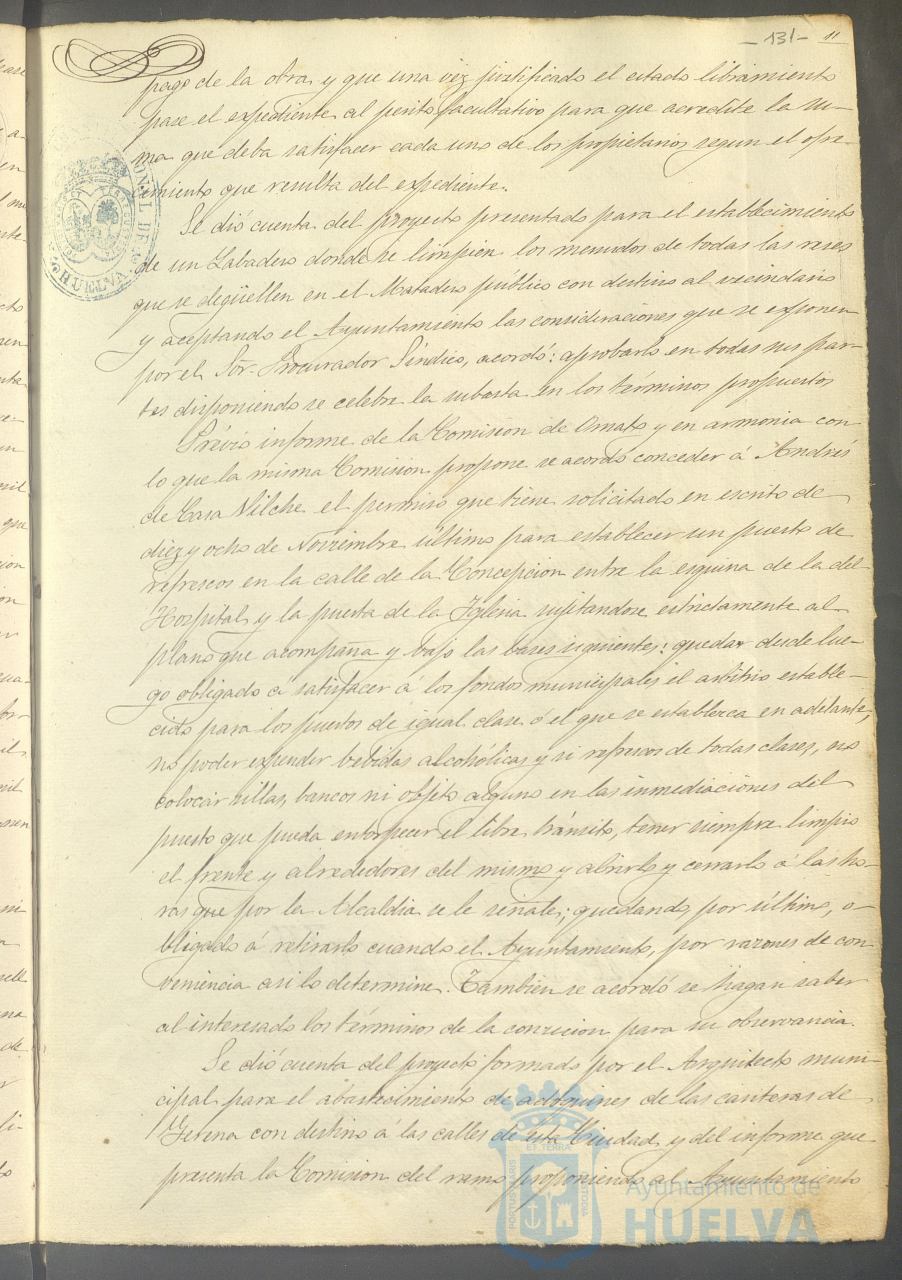 - 131 - 11
pago de la obra y que una vez justificado el citado libramiento
pase el expediente al perito facultativo para que acredite la su-
ma que deba satisfacer cada uno de los propietarios segun el ofre-
cimiento que resulta del expediente.
Se dió cuenta del proyecto presentado para el establecimiento
de un Labadero donde se limpien los menudos de todas las reses
que se degüellen en el Matadero publico con destino al vecindario
y aceptando el Ayuntamiento las consideraciones que se exponen
por el Sor. Procurador Síndico, acordó: aprobarlo en todas sus par-
tes disponiendo se celebre la subasta en los términos propuestos
Prévio informe de la Comision de Ornato y en armonia con
lo que la misma Comision propone se acordó conceder á Andrés
de Casa Vilche el permiso que tiene solicitado en escrito de
diez y ocho de Noviembre último para establecer un puesto de
refrescos en la calle de la Concepcion entre la esquina de la del
Hospital y la puerta de la Iglesia sujetandose estrictamente al
plano que acompaña y bajo las bases siguientes: quedar desde lue-
go obligado á satisfacer á los fondos municipales el arbitrio estable-
cido para los puestos de igual clase ó el que se establezca en adelante,
no poder expender bebidas alcohólicas y si refrescos de todas clases, no
colocar sillas, bancos ni objeto alguno en las inmediaciones del
puesto que pueda entorpecer el libre tránsito, tener siempre limpio
el frente y alrededores del mismo y abrirlo y cerrarlo á las ho-
ras que por la Alcaldia se le señale; quedando, por último, o-
bligado á retirarlo cuando el Ayuntamiento, por razones de con
veniencia asi lo determine. Tambien se acordó se hagan saber
al interesado los términos de la concesion para su observancia.
Se dió cuenta del proyecto formado por el Arquitecto muni-
cipal para el abastecimiento de adoquines de las canteras de
Gerena con destino á las calles de esta Ciudad, y del informe que
presenta la Comision del ramo proponiendo al Ayuntamiento
HUELVA
PORTUS MARIS ET TERRÆ CUSTODIA
Ayuntamiento de
HUELVA